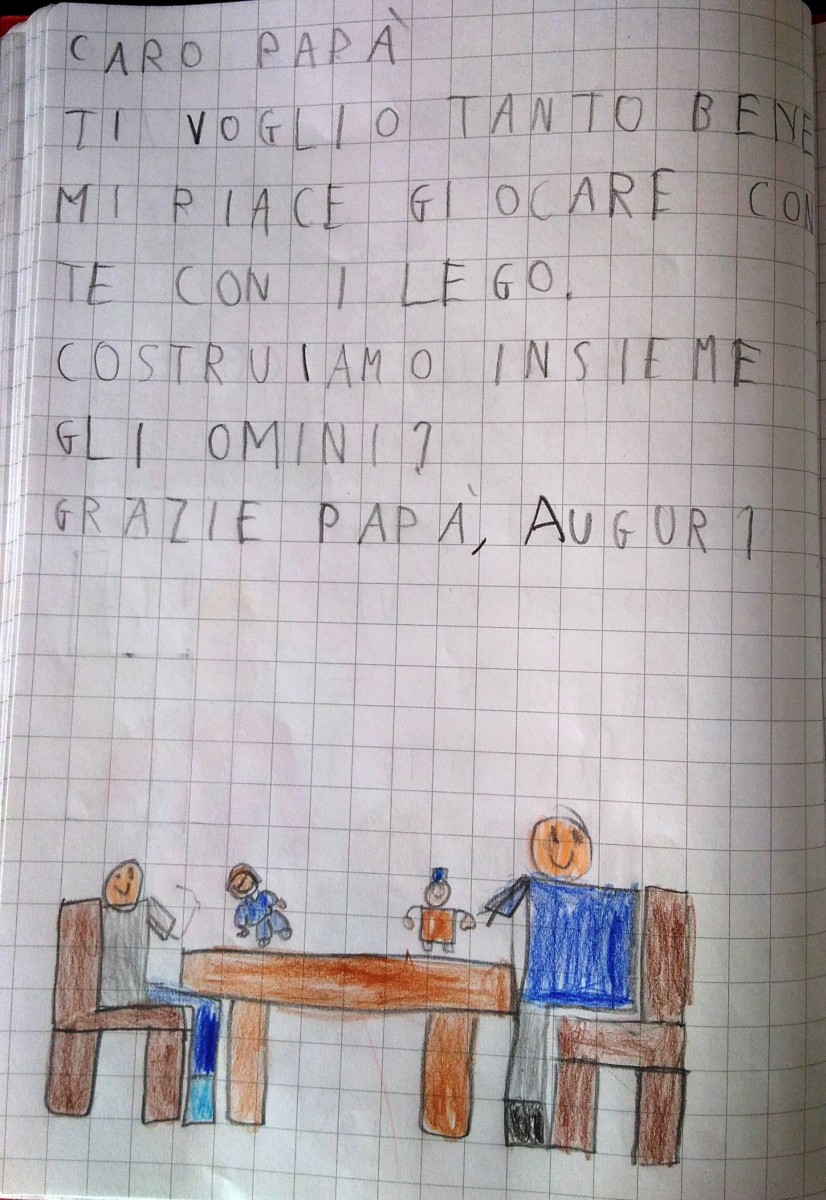 CARO PAPÀ
TI VOGLIO TANTO BENE
MI PIACE GIOCARE CON
TE CON I LEGO.
COSTRUIAMO INSIEME
GLI OMINI?
GRAZIE PAPÀ, AUGURI